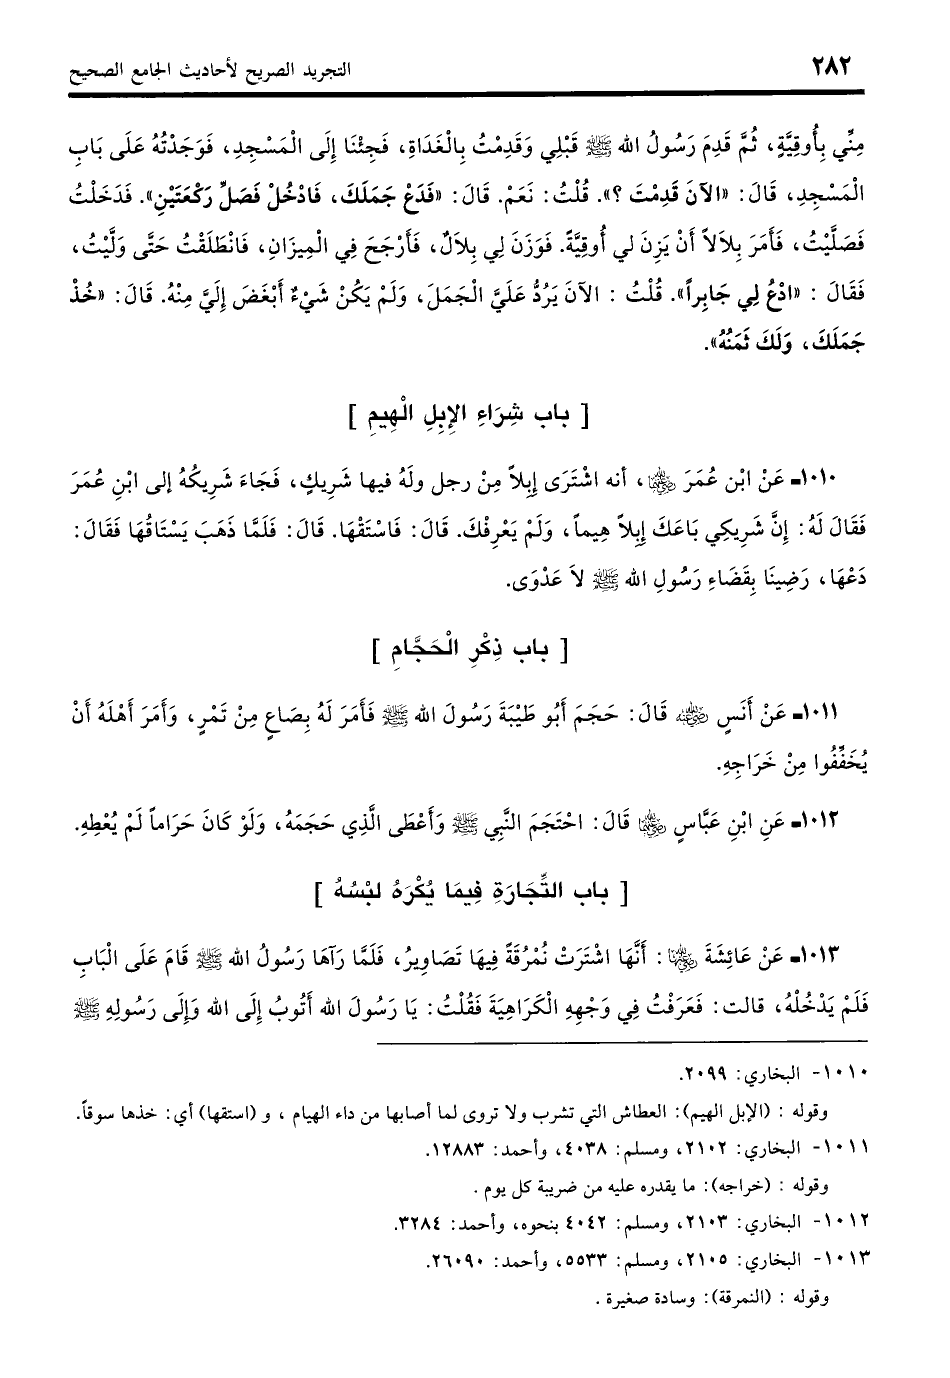 ٢٨٢ التجريد الصريح لأحاديث الجامع الصحيح
مِنِّي بِأُوقِيَّةٍ، ثُمَّ قَدِمَ رَسُولُ الله ﷺ قَبْلِي وَقَدِمْتُ بِالْغَدَاةِ، فَجِئْنَا إِلَى الْمَسْجِدِ، فَوَجَدْتُهُ عَلَى بَابِ
الْمَسْجِدِ، قَالَ: «الآنَ قَدِمْتَ ؟». قُلْتُ: نَعَمْ. قَالَ: «فَدَعْ جَمَلَكَ، فَادْخُلْ فَصَلِّ رَكْعَتَيْنِ». فَدَخَلْتُ
فَصَلَّيْتُ، فَأَمَرَ بِلاَلاً أَنْ يَزِنَ لي أُوقِيَّةً. فَوَزَنَ لِي بِلاَلٌ، فَأَرْجَحَ فِي الْمِيزَانِ، فَانْطَلَقْتُ حَتَّى وَلَّيْتُ،
فَقَالَ : «ادْعُ لِي جَابِراً». قُلْتُ : الآنَ يَرُدُّ عَلَيَّ الْجَمَلَ، وَلَمْ يَكُنْ شَيْءٌ أَبْغَضَ إِلَيَّ مِنْهُ. قَالَ: «خُذْ
جَمَلَكَ، وَلَكَ ثَمَنُهُ».
[ باب شِرَاءِ الإِبِلِ الْهِيمِ ]
١٠١٠ـ عَنْ ابْن عُمَرَ ﷺ، أنه اشْتَرَى إِبِلاً مِنْ رجل ولَهُ فيها شَرِيكٍ، فَجَاءَ شَرِيكُهُ إلى ابْنِ عُمَرَ
فَقَالَ لَهُ: إِنَّ شَرِيكِي بَاعَكَ إِبِلاً هِيماً، وَلَمْ يَعْرِفْكَ. قَالَ: فَاسْتَقْهَا. قَالَ: فَلَمَّا ذَهَبَ يَسْتَاقُهَا فَقَالَ:
دَعْهَا، رَضِينَا بِقَضَاءِ رَسُولِ الله ﷺ لاَ عَدْوَى.
[ باب ذِكْرِ الْحَجَّامِ ]
١٠١١ـ عَنْ أَنَسٍ رضي الله عنه قَالَ: حَجَمَ أَبُو طَيْبَةَ رَسُولَ الله ﷺ فَأَمَرَ لَهُ بِصَاعٍ مِنْ تَمْرٍ، وَأَمَرَ أَهْلَهُ أَنْ
يُخَفِّفُوا مِنْ خَرَاجِهِ.
١٠١٢ـ عَنِ ابْنِ عَبَّاسٍ رضي الله عنهما قَالَ: احْتَجَمَ النَّبِي ﷺ وَأَعْطَى الَّذِي حَجَمَهُ، وَلَوْ كَانَ حَرَاماً لَمْ يُعْطِهِ.
[ باب التِّجَارَةِ فِيمَا يُكْرَهُ لبْسُهُ ]
١٠١٣ـ عَنْ عَائِشَةَ رضي الله عنها : أَنَّهَا اشْتَرَتْ نُمْرُقَةً فِيهَا تَصَاوِيرُ، فَلَمَّا رَآهَا رَسُولُ الله ﷺ قَامَ عَلَى الْبَابِ
فَلَمْ يَدْخُلْهُ، قالت: فَعَرَفْتُ فِي وَجْهِهِ الْكَرَاهِيَةَ فَقُلْتُ: يَا رَسُولَ الله أَتُوبُ إِلَى الله وَإِلَى رَسُولِهِ ﷺ
١٠١٠- البخاري: ٢٠٩٩.
وقوله : (الإبل الهيم): العطاش التي تشرب ولا تروى لما أصابها من داء الهيام ، و (استقها) أي: خذها سوقاً.
١٠١١- البخاري: ٢١٠٢، ومسلم: ٤٠٣٨، وأحمد: ١٢٨٨٣.
وقوله : (خراجه): ما يقدره عليه من ضريبة كل يوم .
١٠١٢- البخاري: ٢١٠٣، ومسلم: ٤٠٤٢ بنحوه، وأحمد: ٣٢٨٤.
١٠١٣- البخاري: ٢١٠٥، ومسلم: ٥٥٣٣، وأحمد: ٢٦٠٩٠.
وقوله : (النمرقة): وسادة صغيرة .